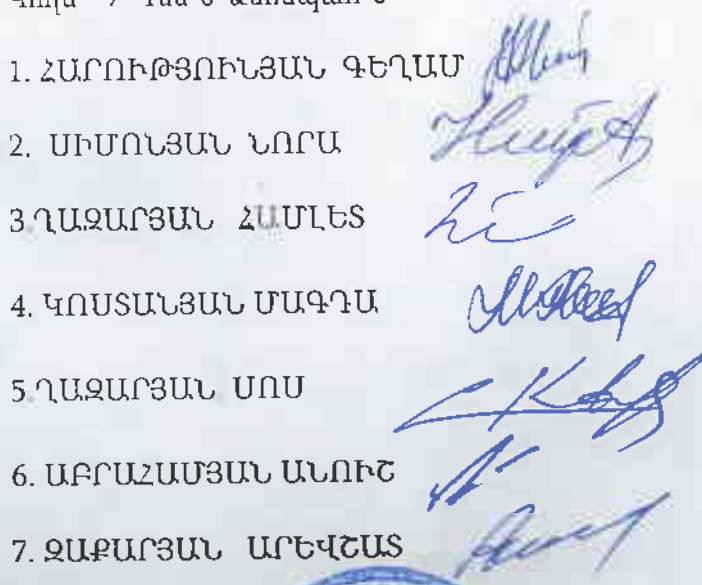 1. ՀԱՐՈՒԹՅՈՒՆՅԱՆ ԳԵՂԱՄ
2. ՍԻՄՈՆՅԱՆ ՆՈՐԱ
3.ՂԱԶԱՐՅԱՆ ՀԱՄԼԵՏ
4. ԿՈՍՏԱՆՅԱՆ ՄԱԳԴԱ
5.ՂԱԶԱՐՅԱՆ ՍՈՍ
6. ԱԲՐԱՀԱՄՅԱՆ ԱՆՈՒՇ
7. ԶԱՔԱՐՅԱՆ ԱՐԵՎՇԱՏ